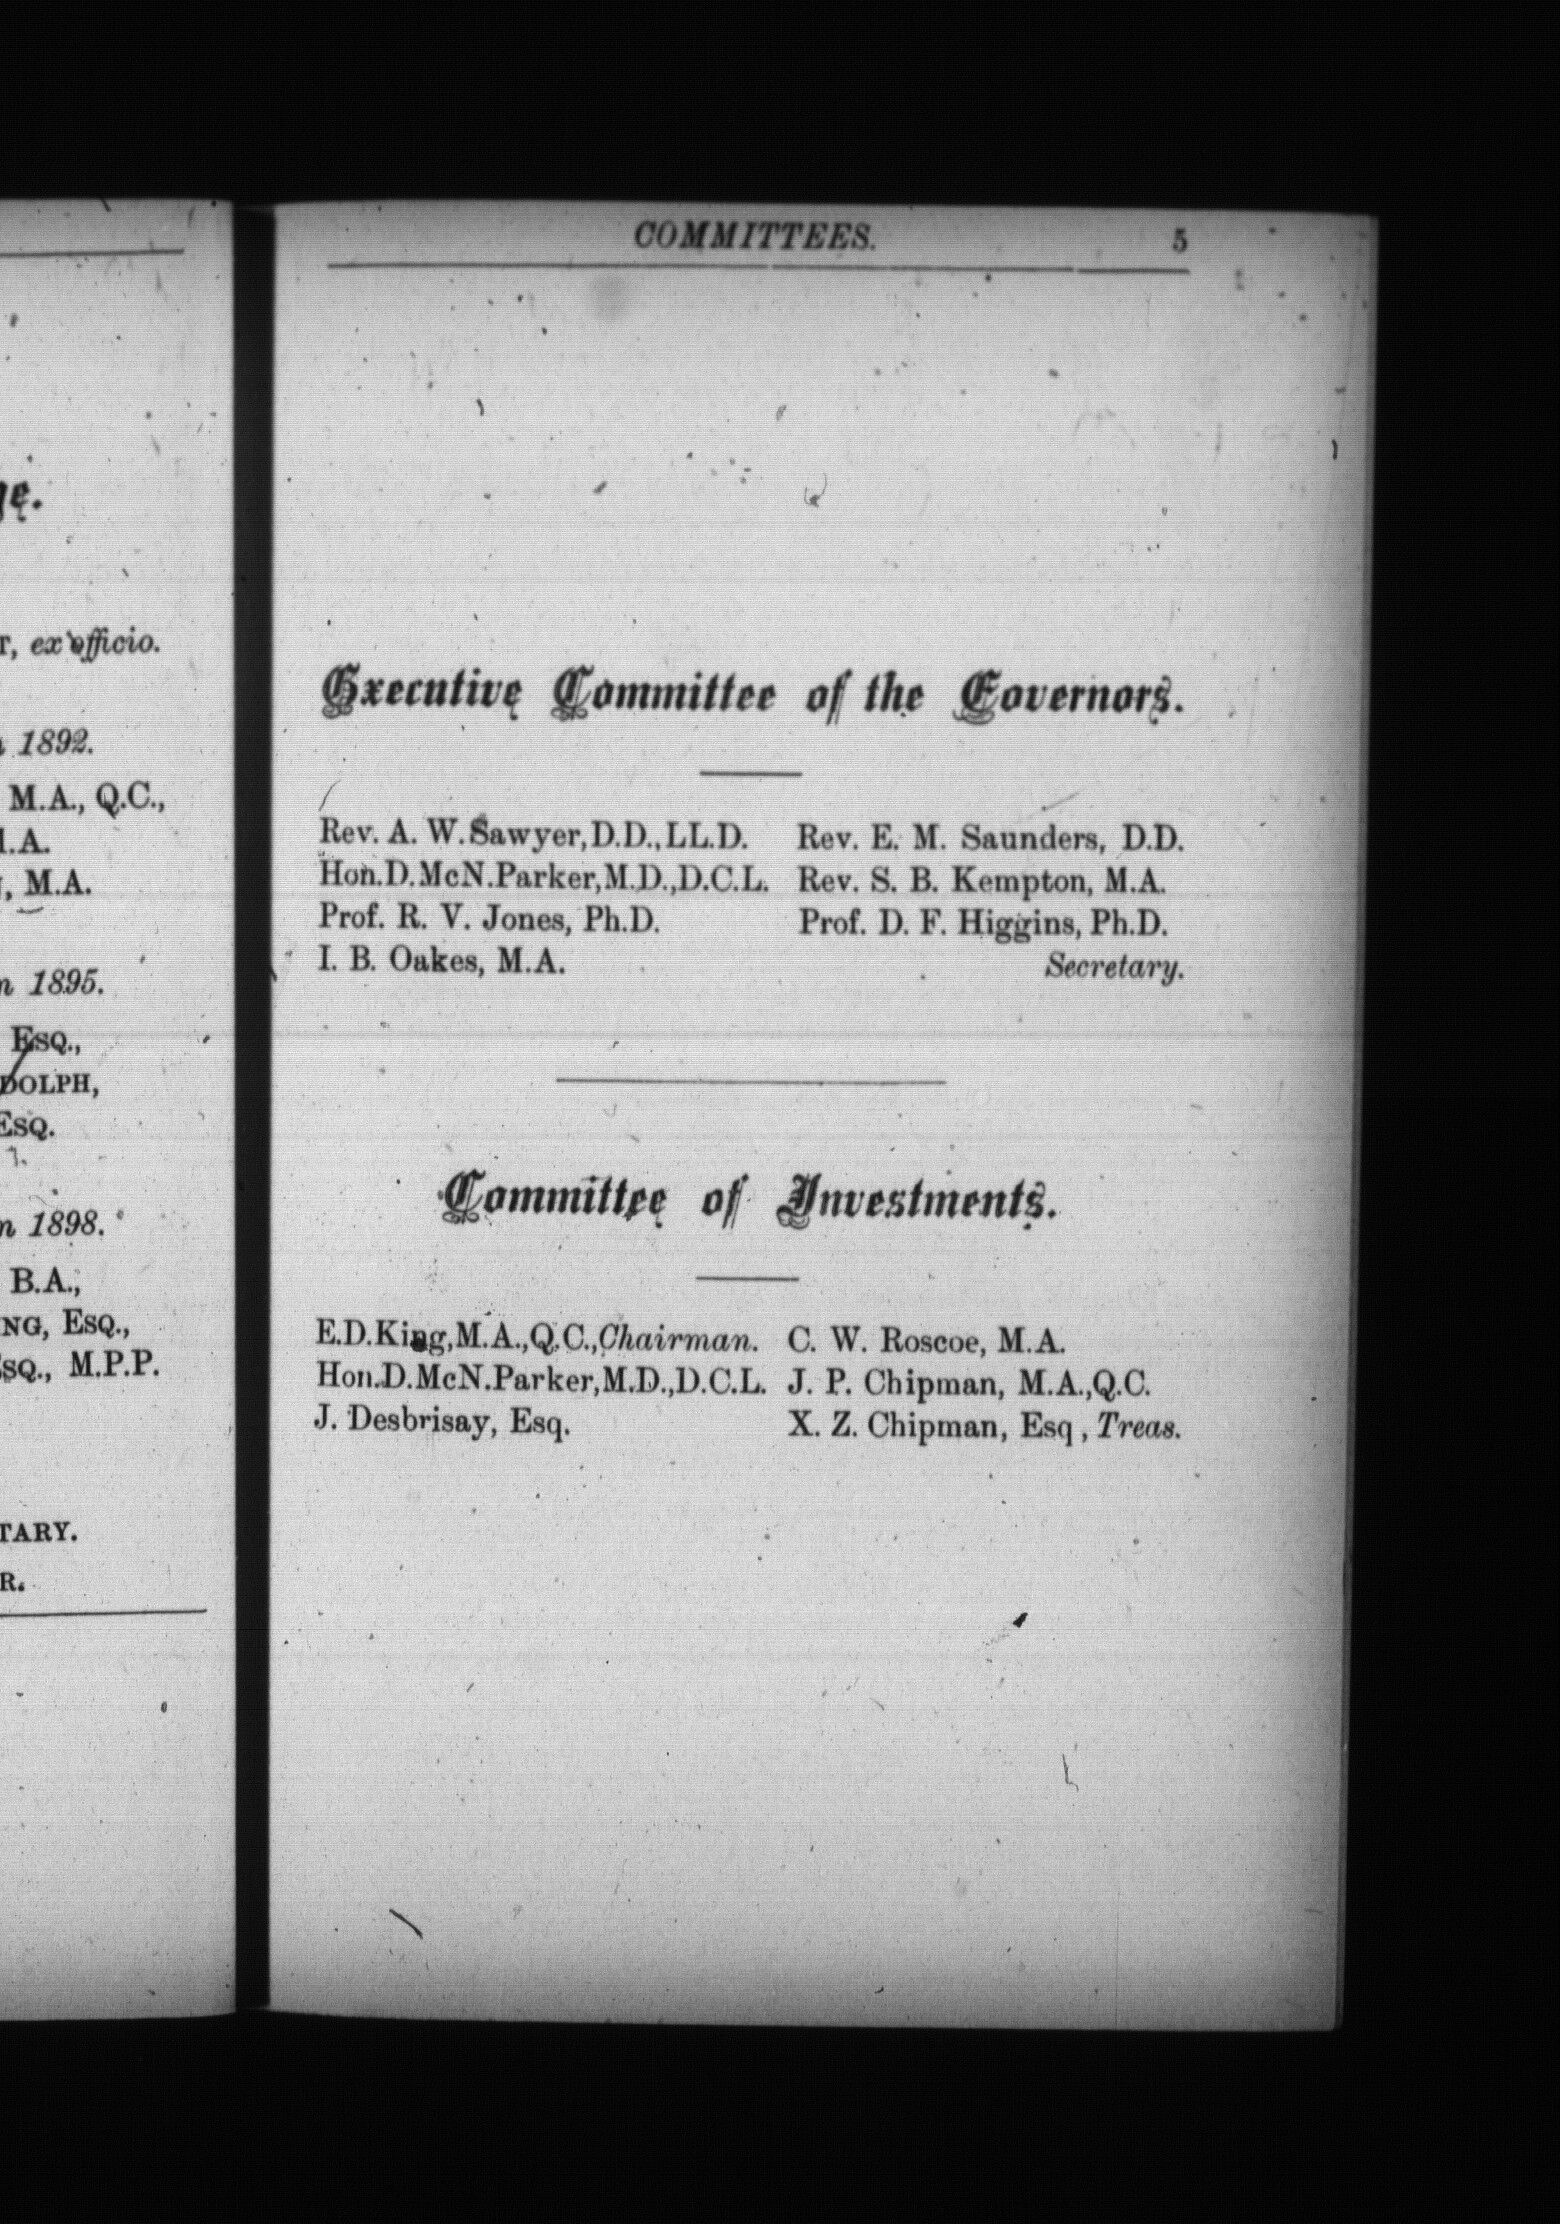 ge.
T, ex officio.
1892.
M.A., Q.C.,
M.A.
M.A.
1895.
Esq.,
DOLPH,
Esq.
1898.
B.A.,
ING, Esq.,
Esq., M.P.P.
TARY.
R.
COMMITTEES. 5
Executive Committee of the Governors.
Rev. A. W. Sawyer, D.D., LL.D. Rev. E. M. Saunders, D.D.
Hon. D. McN. Parker, M.D., D.C.L. Rev. S. B. Kempton, M.A.
Prof. R. V. Jones, Ph.D. Prof. D. F. Higgins, Ph.D.
I. B. Oakes, M.A. Secretary.
Committee of Investments.
E. D. King, M.A., Q.C., Chairman. C. W. Roscoe, M.A.
Hon. D. McN. Parker, M.D., D.C.L. J. P. Chipman, M.A., Q.C.
J. Desbrisay, Esq. X. Z. Chipman, Esq , Treas.